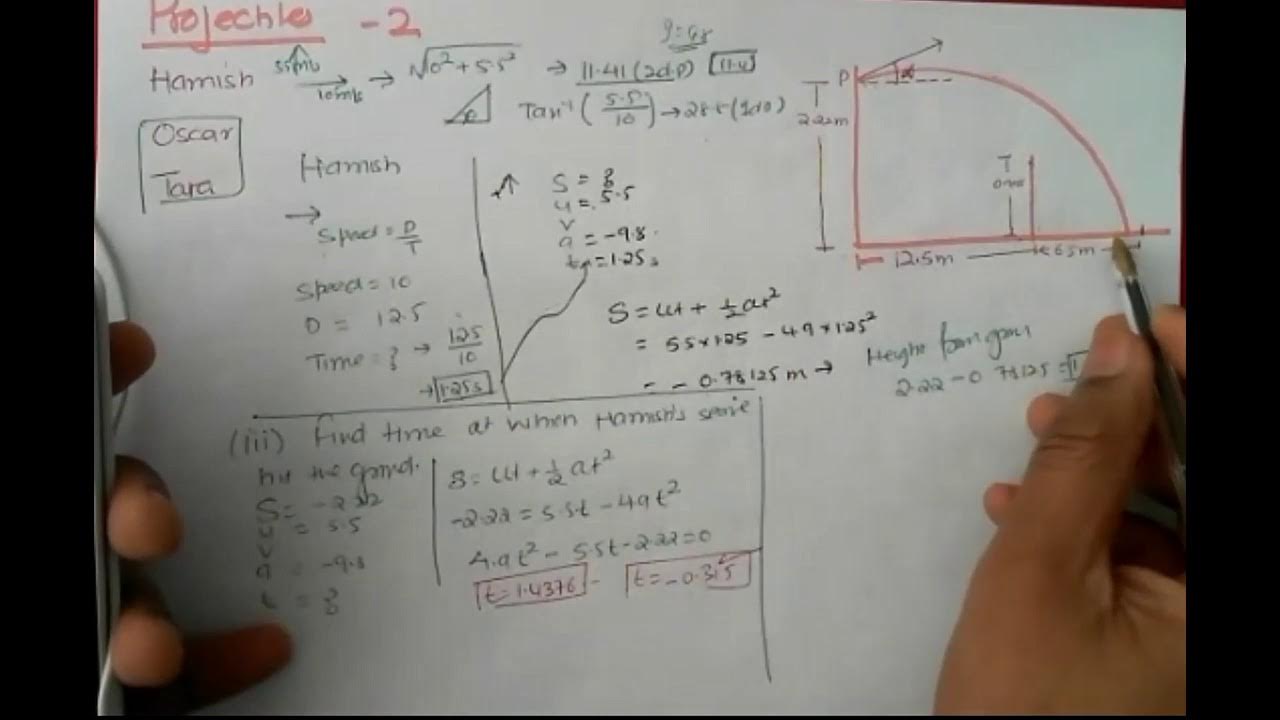 Projectiles - 2
g = 9.8
Hamish 5.5m/s 10m/s → √10²+5.5² → 11.41 (2d.p) 11.4
θ Tan⁻¹ (5.5/10) → 28.8 (1dp)
Oscar
Tara
Hamish
→ Speed = D/T
Speed = 10
D = 12.5
Time = ? → 12.5/10
→ 1.25s
↑ S = ?
u = 5.5
v
a = -9.8
t = 1.25s
S = ut + ½at²
= 5.5×1.25 - 4.9×1.25²
= -0.78125 m → Height from
2.22 - 0.78125 =
P
α
2.22m
T
12.5m
6.5m
(iii) Find time at when Hamish's serve
hit the ground.
S = -2.22
u = 5.5
v
a = -9.8
t = ?
S = ut + ½at²
-2.22 = 5.5t - 4.9t²
4.9t² - 5.5t - 2.22 = 0
t = 1.4376 - t = -0.315